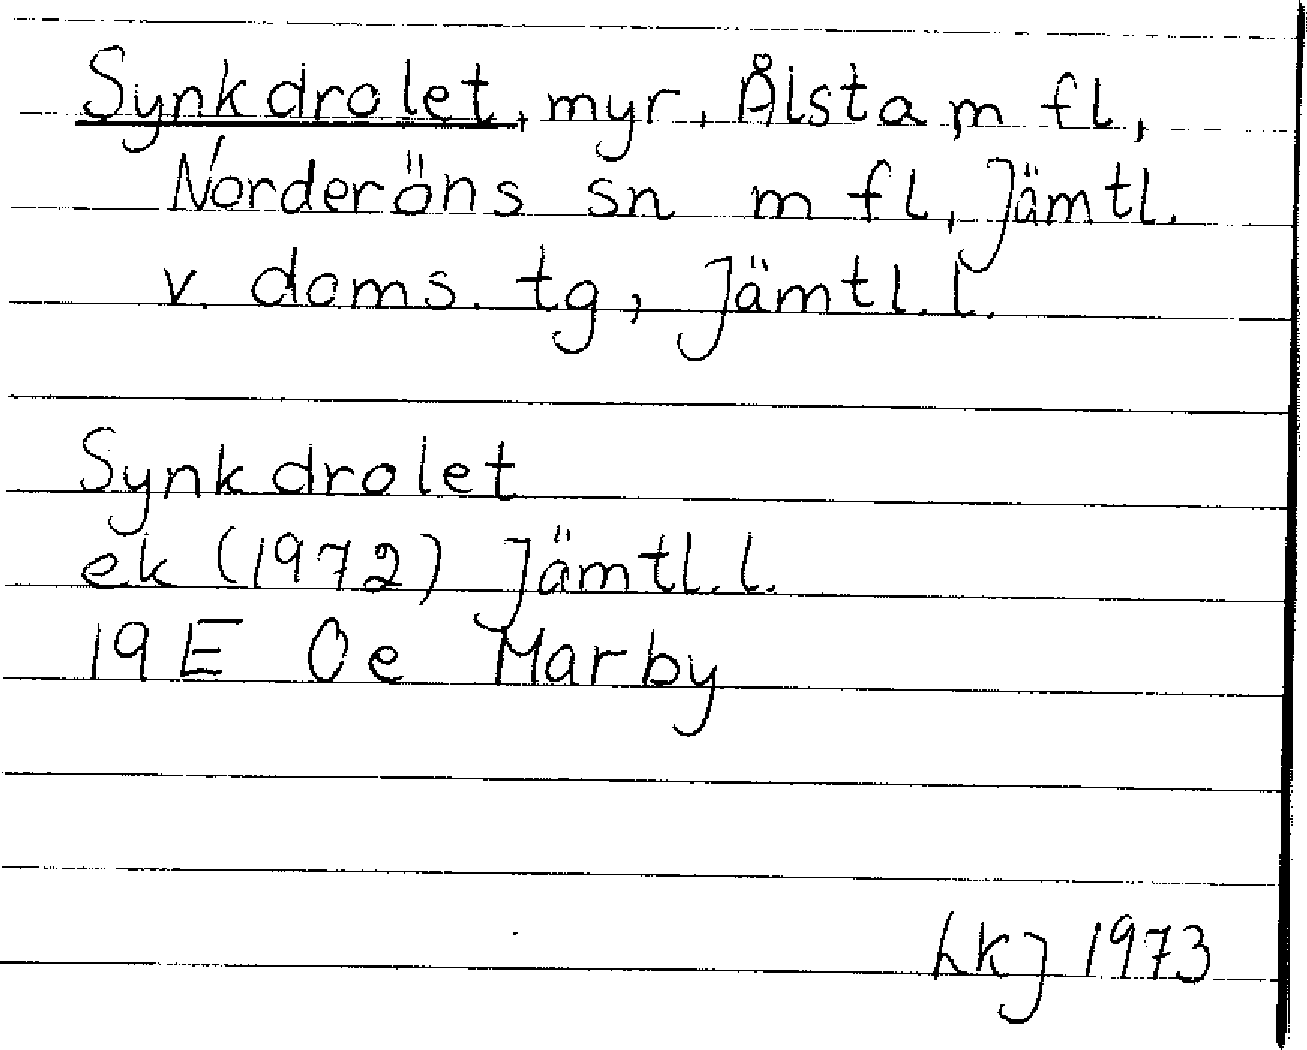 Synkdrolet, myr, Ålsta m fl,
Norderöns sn m fl, Jämtl.
v. doms. tg, Jämtl. l.
Synkdrolet
ek (1972) Jämtl. l.
19E 0e Marby
LKJ 1973